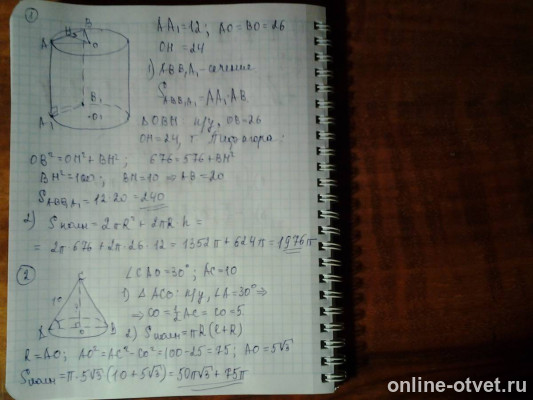 ①
B
H
A
O
B₁
A₁
O₁
AA₁=12; AO=BO=26
OH=24
1) ABB₁A₁ - сечение
S ABB₁A₁ = AA₁·AB
△OBH п/у, OB=26
OH=24, т. Пифагора:
OB²=OH²+BH²; 676=576+BH²
BH²=100; BH=10 ⇒ AB=20
S ABB₁A₁ = 12·20=240
2) Sполн=2πR²+2πR h =
= 2π·676+2π·26·12=1352π+624π=1976π
②
C
10
A
O
B
∠CAO=30°; AC=10
1) △ACO: п/у, ∠A=30° ⇒
⇒ CO=½AC = CO=5
2) Sполн=πR(l+R)
R=AO; AO²=AC²-CO²=100-25=75; AO=5√3
Sполн=π·5√3(10+5√3)=50π√3+75π
online-otvet.ru